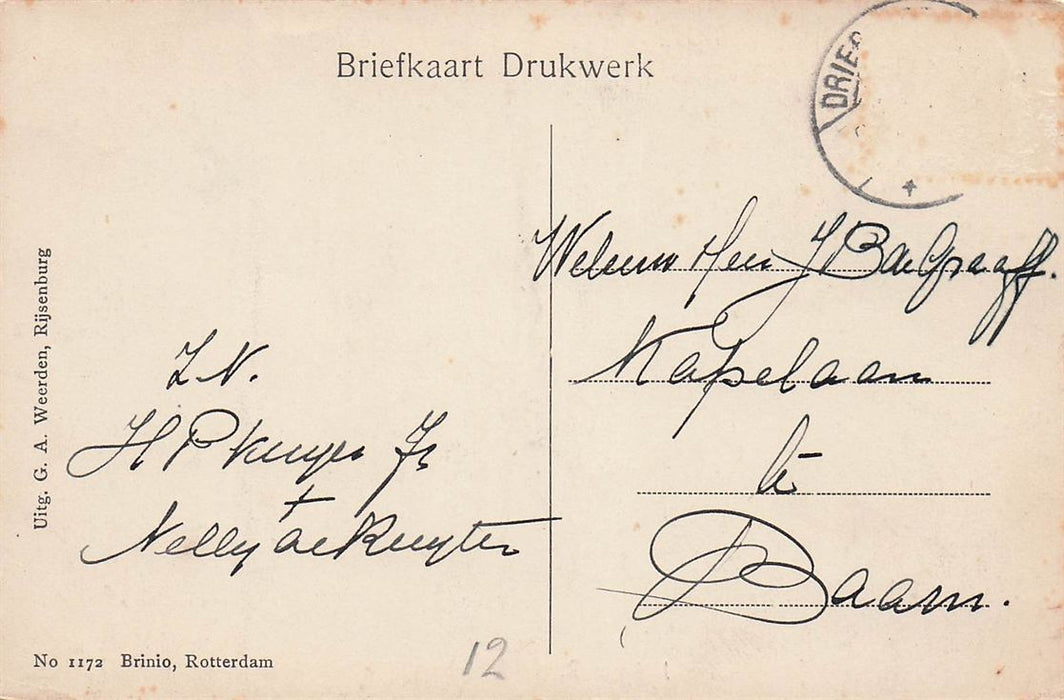 Briefkaart Drukwerk
DRIE
Weleerw Heer J B de Graaff.
Kapelaan
te
Baarn.
Z.N.
H P Kuyper Jr
+
Nelly de Ruyter
Uitg. G. A. Weerden, Rijsenburg
No 1172 Brinio, Rotterdam
12